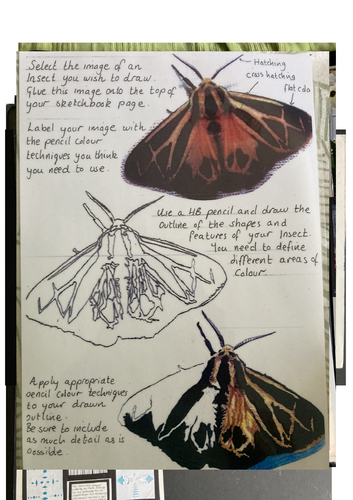 Select the image of an
Insect you wish to draw.
Glue this image onto the top of
your sketchbook page.
Hatching
cross hatching
flat colo
Label your image with
the pencil colour
techniques you think
you need to use.
Use a HB pencil and draw the
outline of the shapes and
features of your Insect.
You need to define
different areas of
Colour.
Apply appropriate
pencil colour techniques
to your drawn
outline.
Be sure to include
as much detail as is
possible.